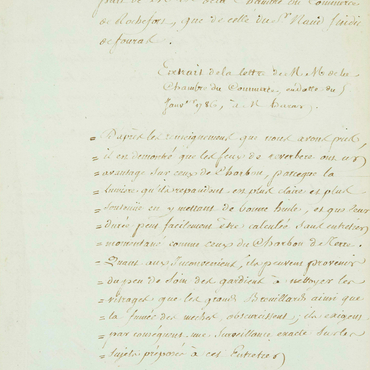 de la Chambre du Commerce
de Rochefort, que de celle du Sr. Niou Sindic
de fouras.
Extrait de la lettre de M. Mrs. de la
Chambre du Commerce, en datte du 5
Janvr. 1786, à M.
= D'après les renseignemens que nous avons pris,
= il est démontré que les feux de reverbere ont un
= avantage sur ceux de Charbon, parceque la
= lumiere qu'ils repandent est plus claire et plus
= soutenüe en y mettant de bonne huile, et que leur
= durée peut facilement être calculée sans entretien
= momentané comme ceux du Charbon de Terre.
= Quant aux Inconveniens, ils peuvent provenir
= du peu de soin des gardiens à nettoyer les
= vitrages que les grands Brouillards ainsi que
= la fumée des meches obscurcissent; ils exigent
= par consequent une surveillance exacte sur les
= sujets préposés à cet Entretien